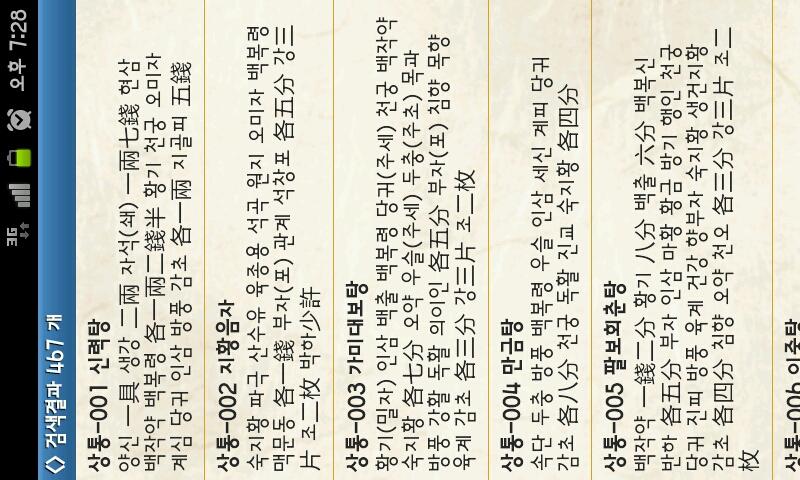 3G 오후 7:28
◇ 검색결과 467 개
상통-001 신력탕
양신 一具 생강 二兩 자석(쇄) 一兩七錢 현삼
백작약 백복령 各一兩二錢半 황기 천궁 오미자
계심 당귀 인삼 방풍 감초 各一兩 지골피 五錢
상통-002 지황음자
숙지황 파극 산수유 육종용 석곡 원지 오미자 백복령
맥문동 各一錢 부자(포) 관계 석창포 各五分 강三
片 조二枚 박하少許
상통-003 가미대보탕
황기(밀자) 인삼 백출 백복령 당귀(주세) 천궁 백작약
숙지황 各七分 오약 우슬(주세) 두충(주초) 목과
방풍 강활 독활 의이인 各五分 부자(포) 침향 목향
육계 감초 各三分 강三片 조二枚
상통-004 만금탕
속단 두충 방풍 백복령 우슬 인삼 세신 계피 당귀
감초 各八分 천궁 독활 진교 숙지황 各四分
상통-005 팔보회춘탕
백작약 一錢二分 황기 八分 백출 六分 백복신
반하 各五分 부자 인삼 마황 황금 방기 행인 천궁
당귀 진피 방풍 육계 건강 향부자 숙지황 생건지황
감초 各四分 침향 오약 천오 各三分 강三片 조二
枚
상통-006 이중탕